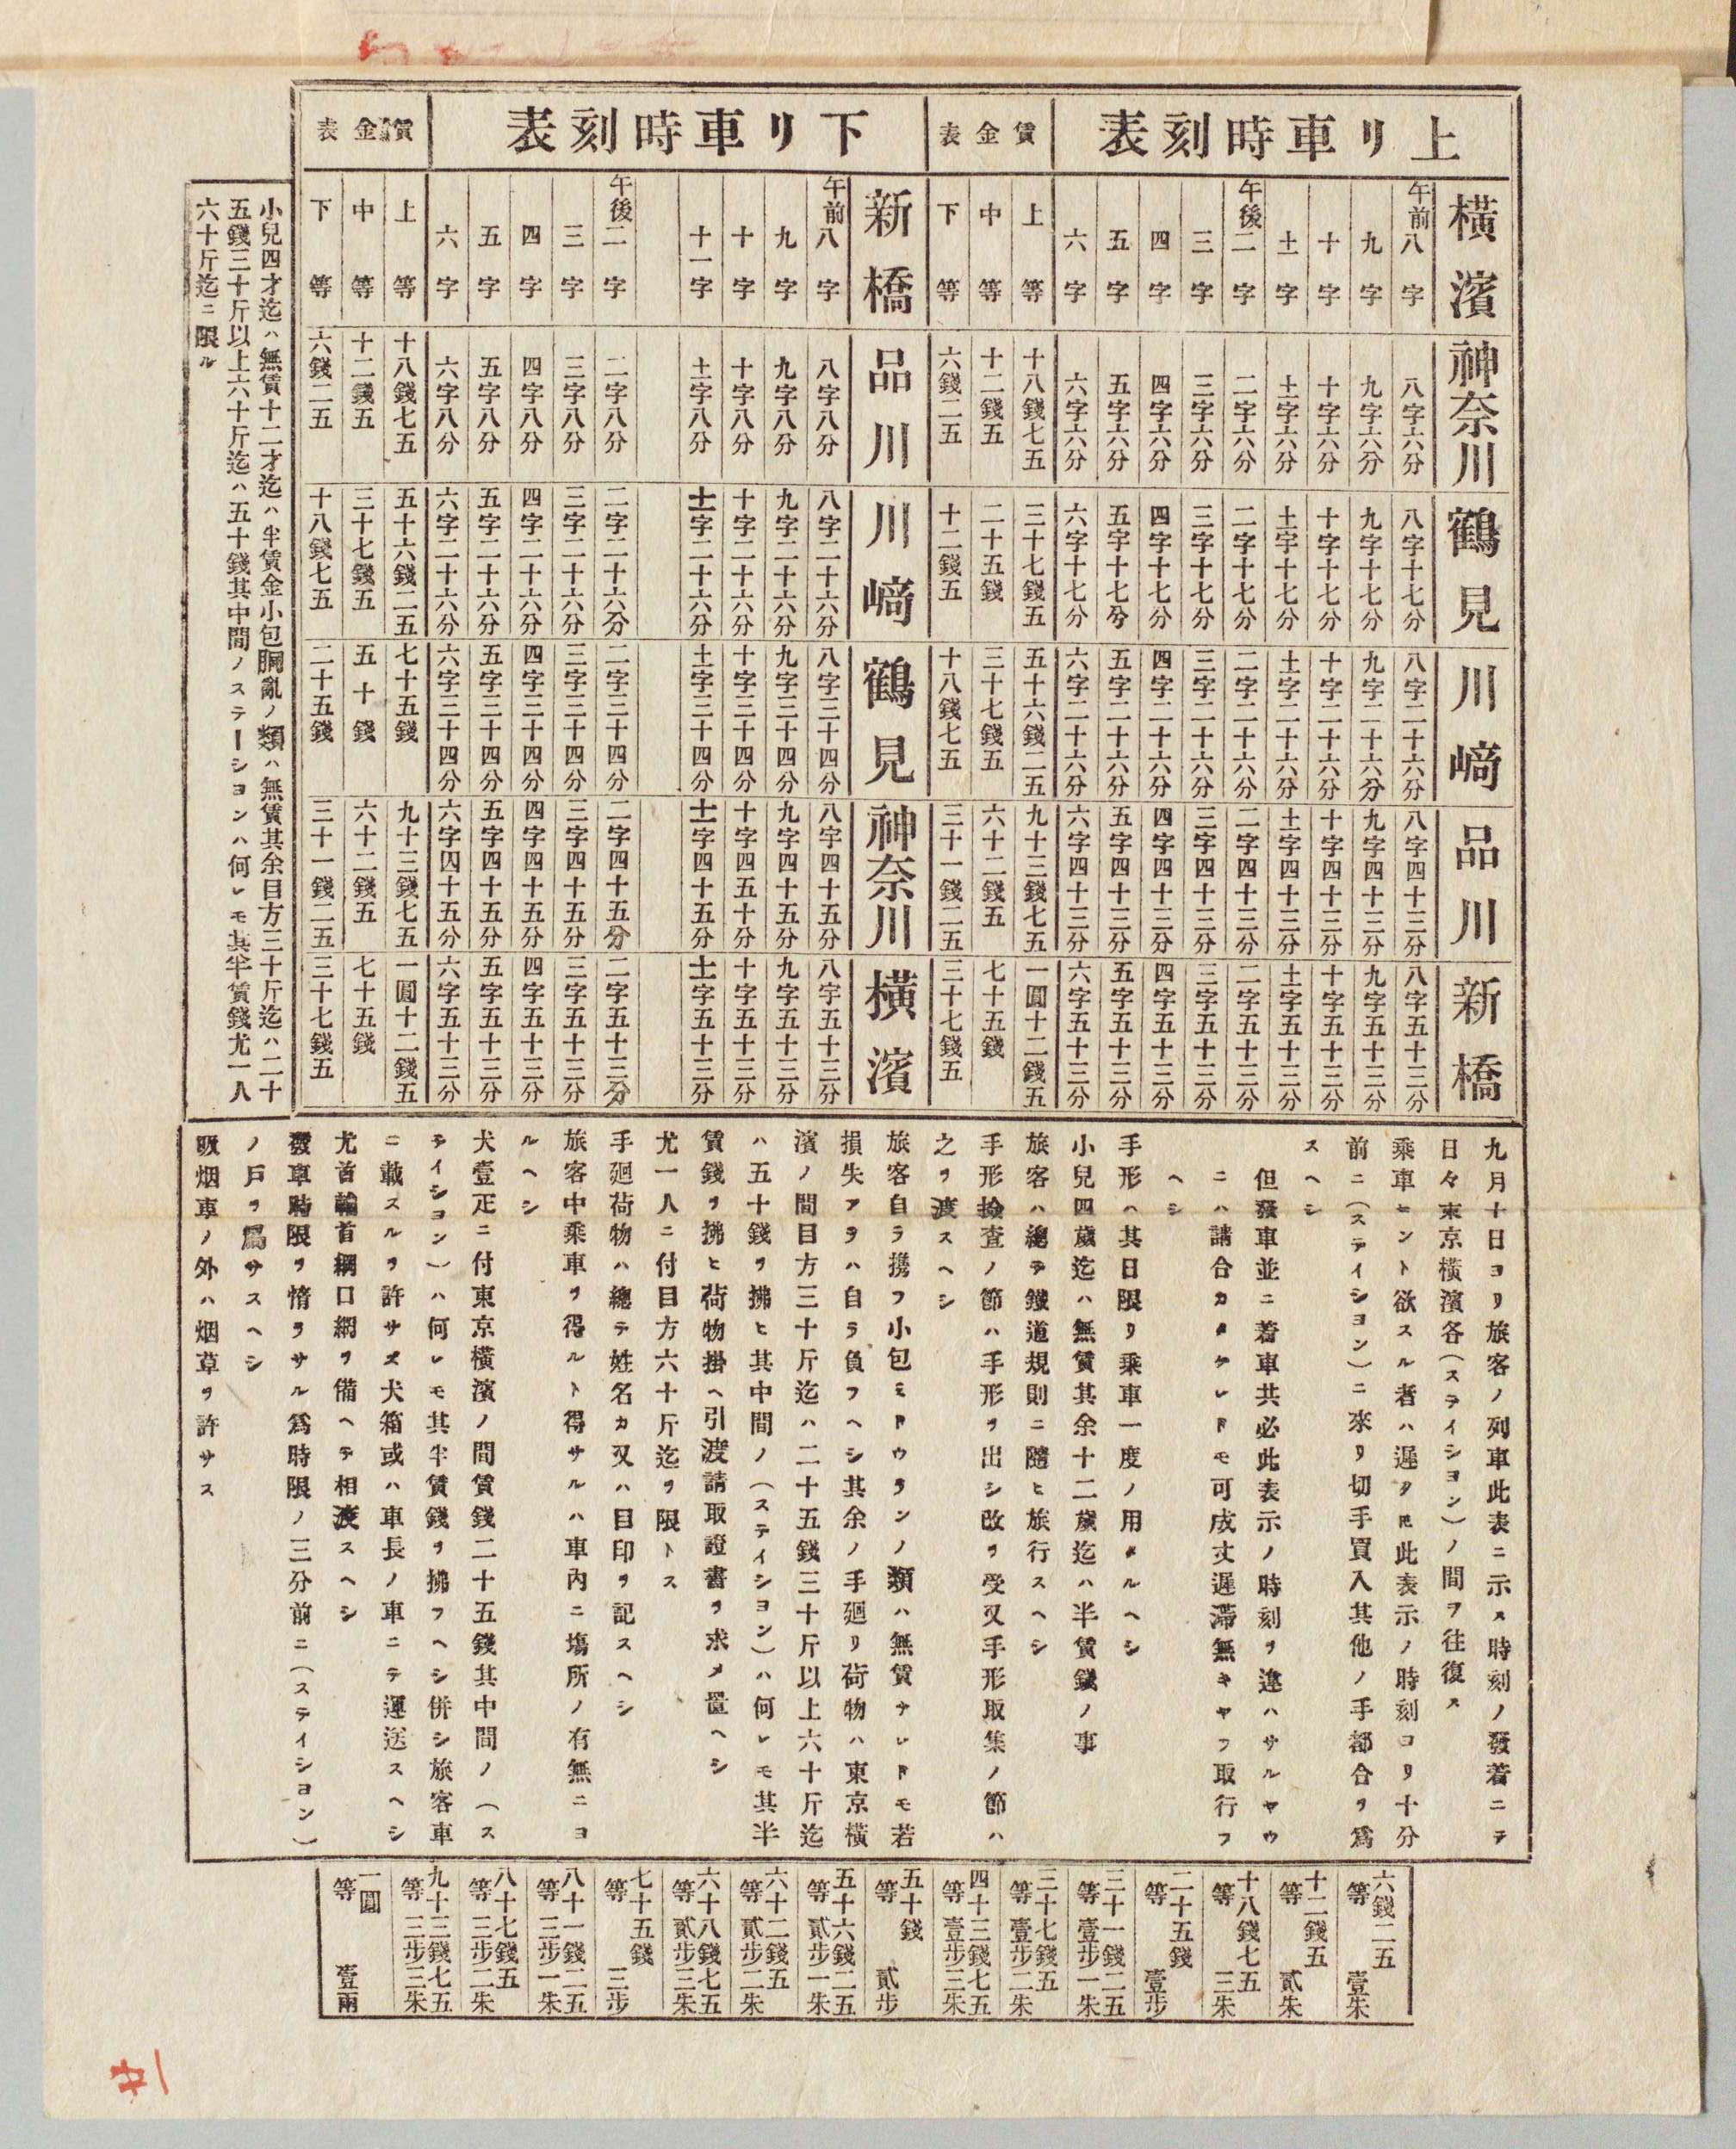 上リ車時刻表
横濱 神奈川 鶴見 川崎 品川 新橋
午前八字 八字六分 八字十七分 八字二十六分 八字四十三分 八字五十三分
九字 九字六分 九字十七分 九字二十六分 九字四十三分 九字五十三分
十字 十字六分 十字十七分 十字二十六分 十字四十三分 十字五十三分
十一字 十一字六分 十一字十七分 十一字二十六分 十一字四十三分 十一字五十三分
午後二字 二字六分 二字十七分 二字二十六分 二字四十三分 二字五十三分
三字 三字六分 三字十七分 三字二十六分 三字四十三分 三字五十三分
四字 四字六分 四字十七分 四字二十六分 四字四十三分 四字五十三分
五字 五字六分 五字十七分 五字二十六分 五字四十三分 五字五十三分
六字 六字六分 六字十七分 六字二十六分 六字四十三分 六字五十三分
賃金表
上等 十八錢七五 三十七錢五 五十六錢二五 九十三錢七五 一圓十二錢五
中等 十二錢五 二十五錢 三十七錢五 六十二錢五 七十五錢
下等 六錢二五 十二錢五 十八錢七五 三十一錢二五 三十七錢五
下リ車時刻表
新橋 品川 川崎 鶴見 神奈川 横濱
午前八字 八字八分 八字二十六分 八字三十四分 八字四十五分 八字五十三分
九字 九字八分 九字二十六分 九字三十四分 九字四十五分 九字五十三分
十字 十字八分 十字二十六分 十字三十四分 十字四五十分 十字五十三分
十一字 十一字八分 十一字二十六分 十一字三十四分 十一字四十五分 十一字五十三分
午後二字 二字八分 二字二十六分 二字三十四分 二字四十五分 二字五十三分
三字 三字八分 三字二十六分 三字三十四分 三字四十五分 三字五十三分
四字 四字八分 四字二十六分 四字三十四分 四字四十五分 四字五十三分
五字 五字八分 五字二十六分 五字三十四分 五字四十五分 五字五十三分
六字 六字八分 六字二十六分 六字三十四分 六字四十五分 六字五十三分
賃金表
上等 十八錢七五 五十六錢二五 七十五錢 九十三錢七五 一圓十二錢五
中等 十二錢五 三十七錢五 五十錢 六十二錢五 七十五錢
下等 六錢二五 十八錢七五 二十五錢 三十一錢二五 三十七錢五
小兒四才迄ハ無賃十二才迄ハ半賃金小包胴亂ノ類ハ無賃其余目方三十斤迄ハ二十
五錢三十斤以上六十斤迄ハ五十錢其中間ノステーシヨンハ何レモ其半賃錢尤一人
六十斤迄ニ限ル
九月十日ヨリ旅客ノ列車此表ニ示ス時刻ノ發着ニテ
日々東京横濱各(ステイシヨン)ノ間ヲ往復ス
乘車セント欲スル者ハ遲クトモ此表示ノ時刻ヨリ十分
前ニ(ステイシヨン)ニ來リ切手買入其他ノ手都合ヲ爲
スヘシ
但發車並ニ着車共必此表示ノ時刻ヲ違ハサルヤウ
ニハ請合カタケレトモ可成丈遲滯無キヤフ取行フ
ヘシ
手形ハ其日限リ乘車一度ノ用タルヘシ
小兒四歳迄ハ無賃其余十二歳迄ハ半賃錢ノ事
旅客ハ總テ鐵道規則ニ隨ヒ旅行スヘシ
手形撿査ノ節ハ手形ヲ出シ改ヲ受又手形取集ノ節ハ
之ヲ渡スヘシ
旅客自ラ携フ小包ミドウランノ類ハ無賃ナレドモ若
損失アラハ自ラ負フヘシ其余ノ手廻リ荷物ハ東京横
濱ノ間目方三十斤迄ハ二十五錢三十斤以上六十斤迄
ハ五十錢ヲ拂ヒ其中間ノ(ステイシヨン)ハ何レモ其半
賃錢ヲ拂ヒ荷物掛ヘ引渡請取證書ヲ求メ置ヘシ
尤一人ニ付目方六十斤迄ヲ限トス
手廻荷物ハ總テ姓名カ又ハ目印ヲ記スヘシ
旅客中乘車ヲ得ルト得サルハ車内ニ塲所ノ有無ニヨ
ルヘシ
犬壹疋ニ付東京横濱ノ間賃錢二十五錢其中間ノ(ス
テイシヨン)ハ何レモ其半賃錢ヲ拂フヘシ併シ旅客車
ニ載スルヲ許サス犬箱或ハ車長ノ車ニテ運送スヘシ
尤首輪首綱口綱ヲ備ヘテ相渡スヘシ
發車時限ヲ惰ラサル爲時限ノ三分前ニ(ステイシヨン)
ノ戸ヲ屬サスヘシ
吸烟車ノ外ハ烟草ヲ許サス
六錢二五等 壹朱
十二錢五等 貳朱
十八錢七五等 三朱
二十五錢等 壹歩
三十一錢二五等 壹歩一朱
三十七錢五等 壹歩二朱
四十三錢七五等 壹歩三朱
五十錢等 貳歩
五十六錢二五等 貳歩一朱
六十二錢五等 貳歩二朱
六十八錢七五等 貳歩三朱
七十五錢等 三歩
八十一錢二五等 三歩一朱
八十七錢五等 三歩二朱
九十三錢七五等 三歩三朱
一圓等 壹兩